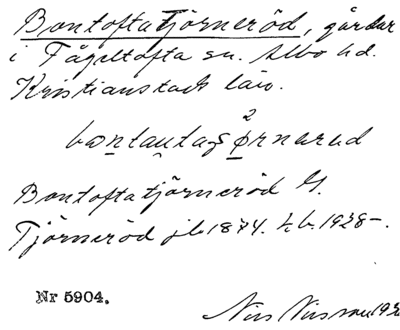 Bontoftatjörneröd, gårdar
i Fågeltofta sn. Albo hd.
Kristianstads län.
Bontoftatjörneröd G.
Tjörneröd jb 1874. hb. 1928-.
Nr 5904.
Nils Nilsson 193